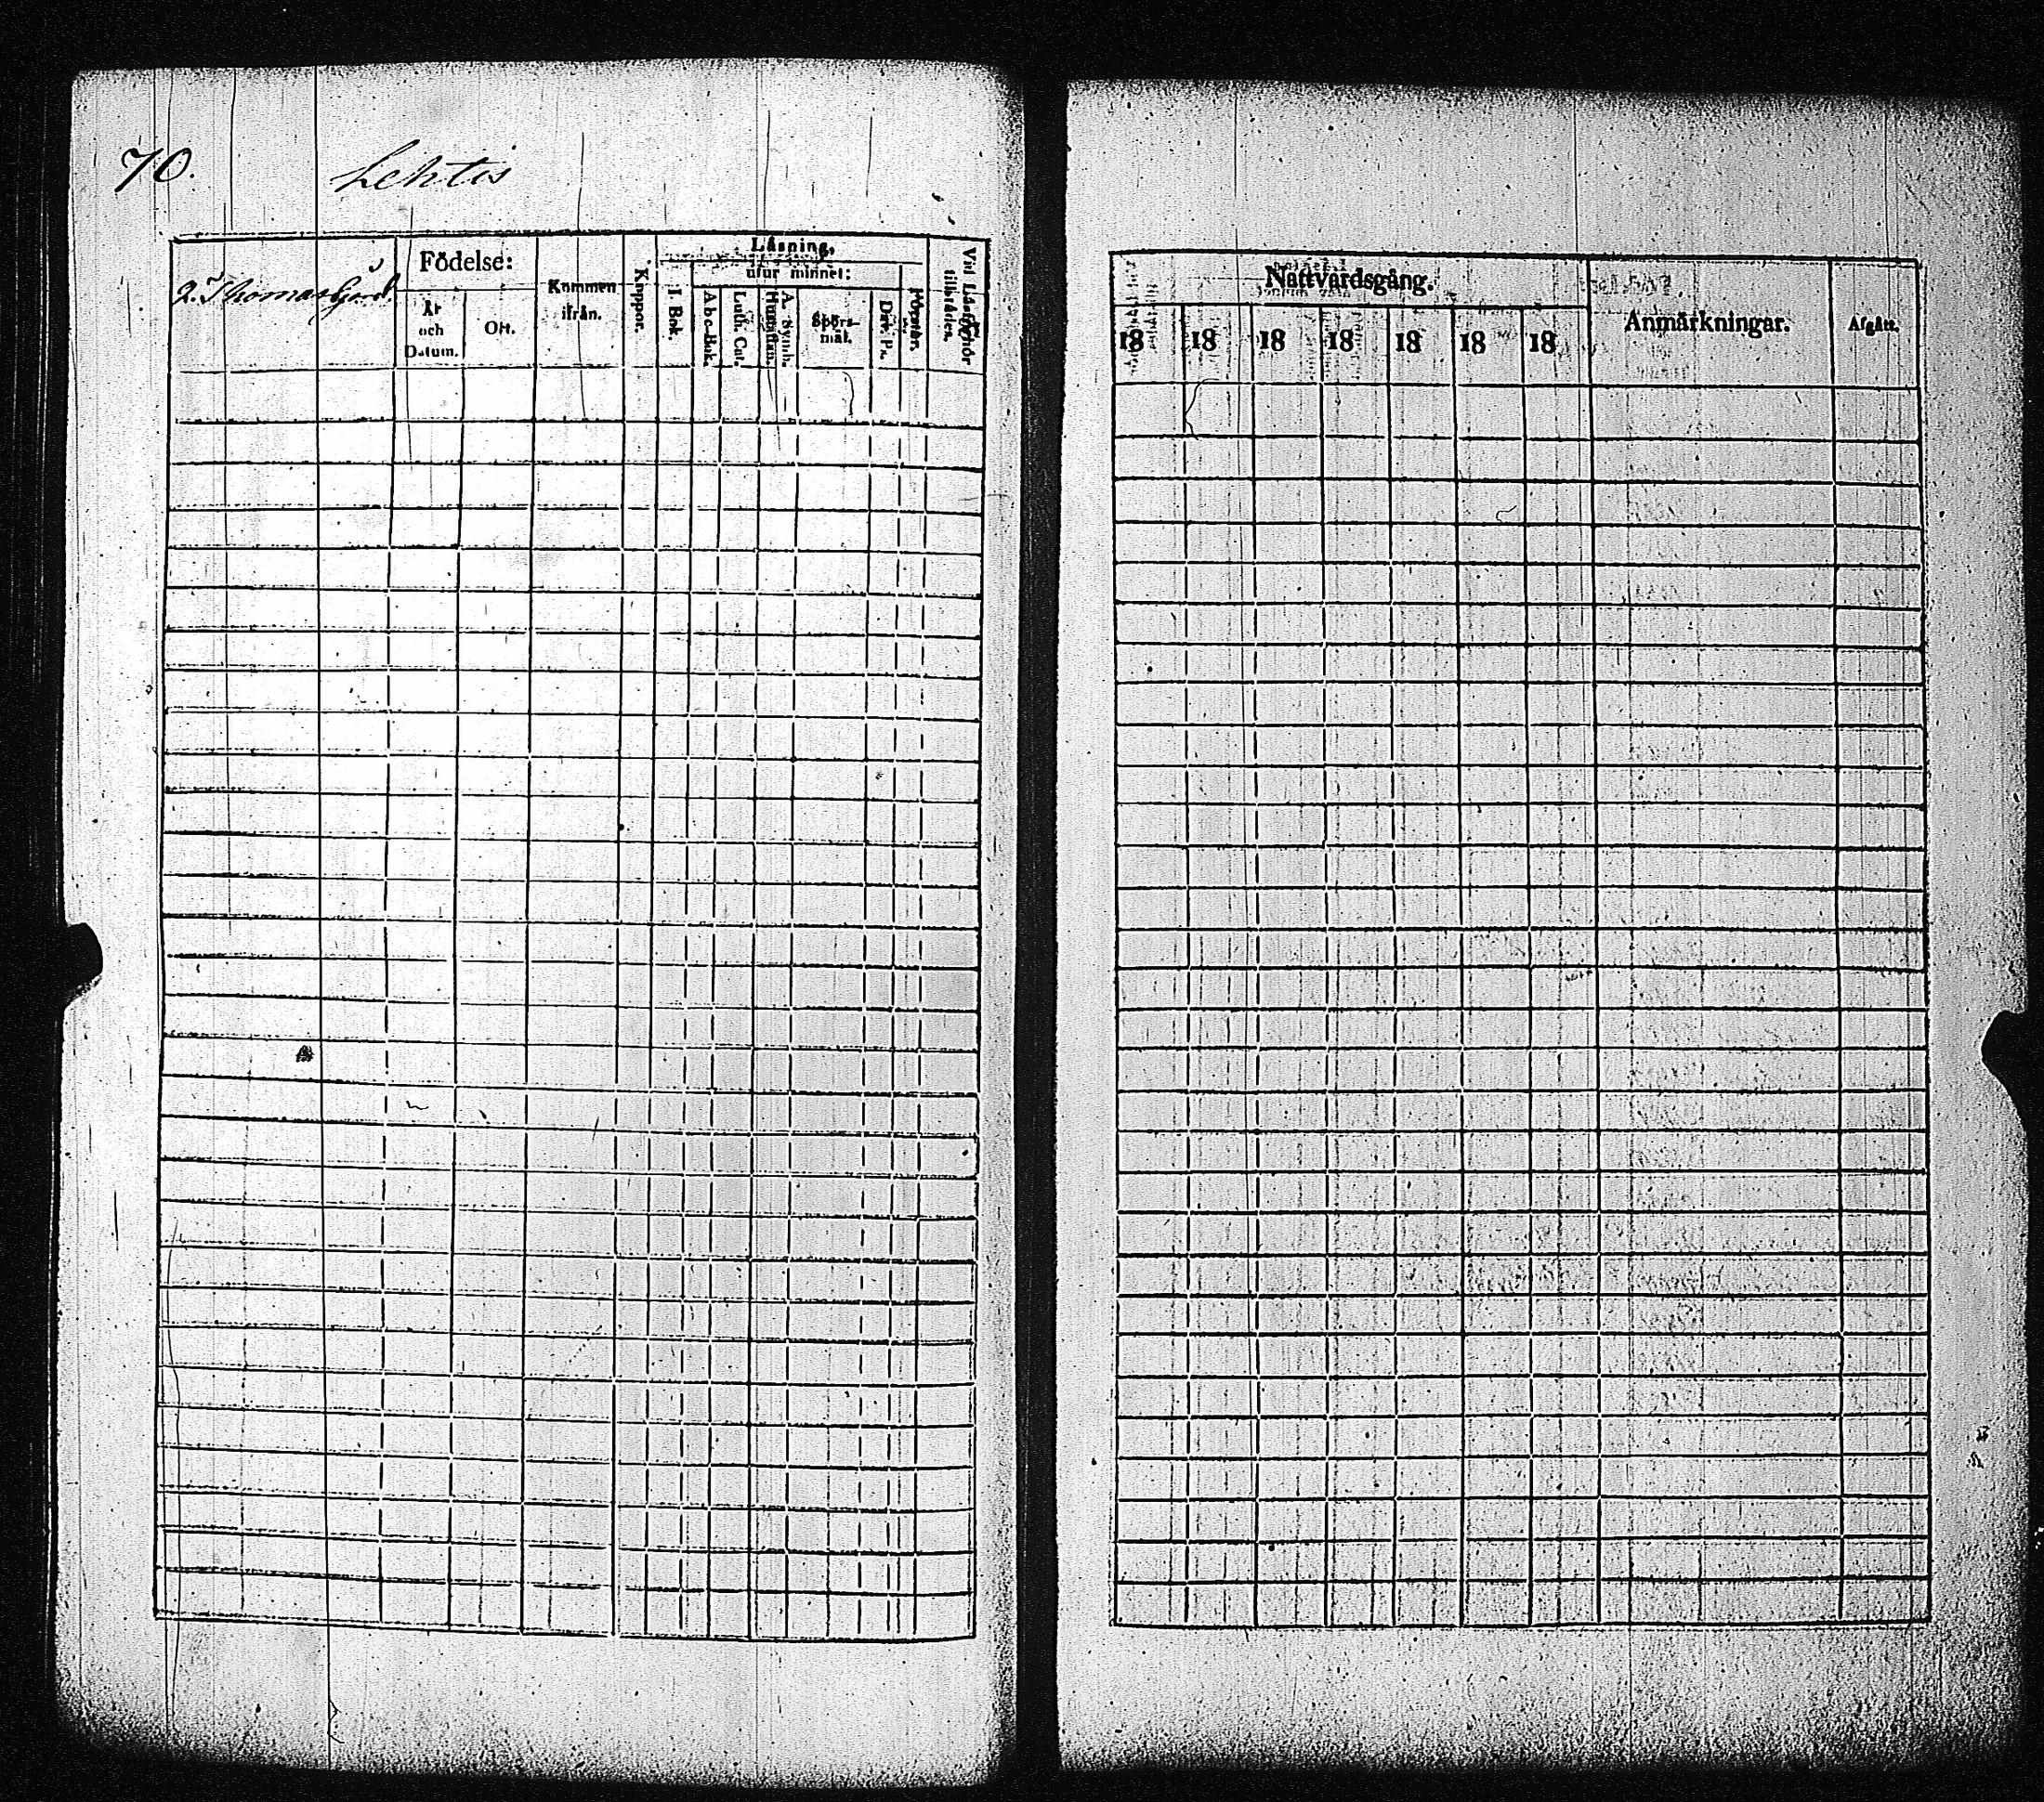 70.
Lehtis
2. Thomasgård.
Födelse:
År
och
Datum.
Ort.
Kommen
ifrån.
Koppor.
Läsning,
I. Bok.
utur minnet:
A b c-Bok.
Luth. Cat.
Hustaflan.
A. Symb.
Spörs-
mål.
Dav. Ps.
Förstår.
Vid Läsförhör
tillstädes.
Nattvardsgång.
18 18 18 18 18 18 18
Anmärkningar.
Afgått.